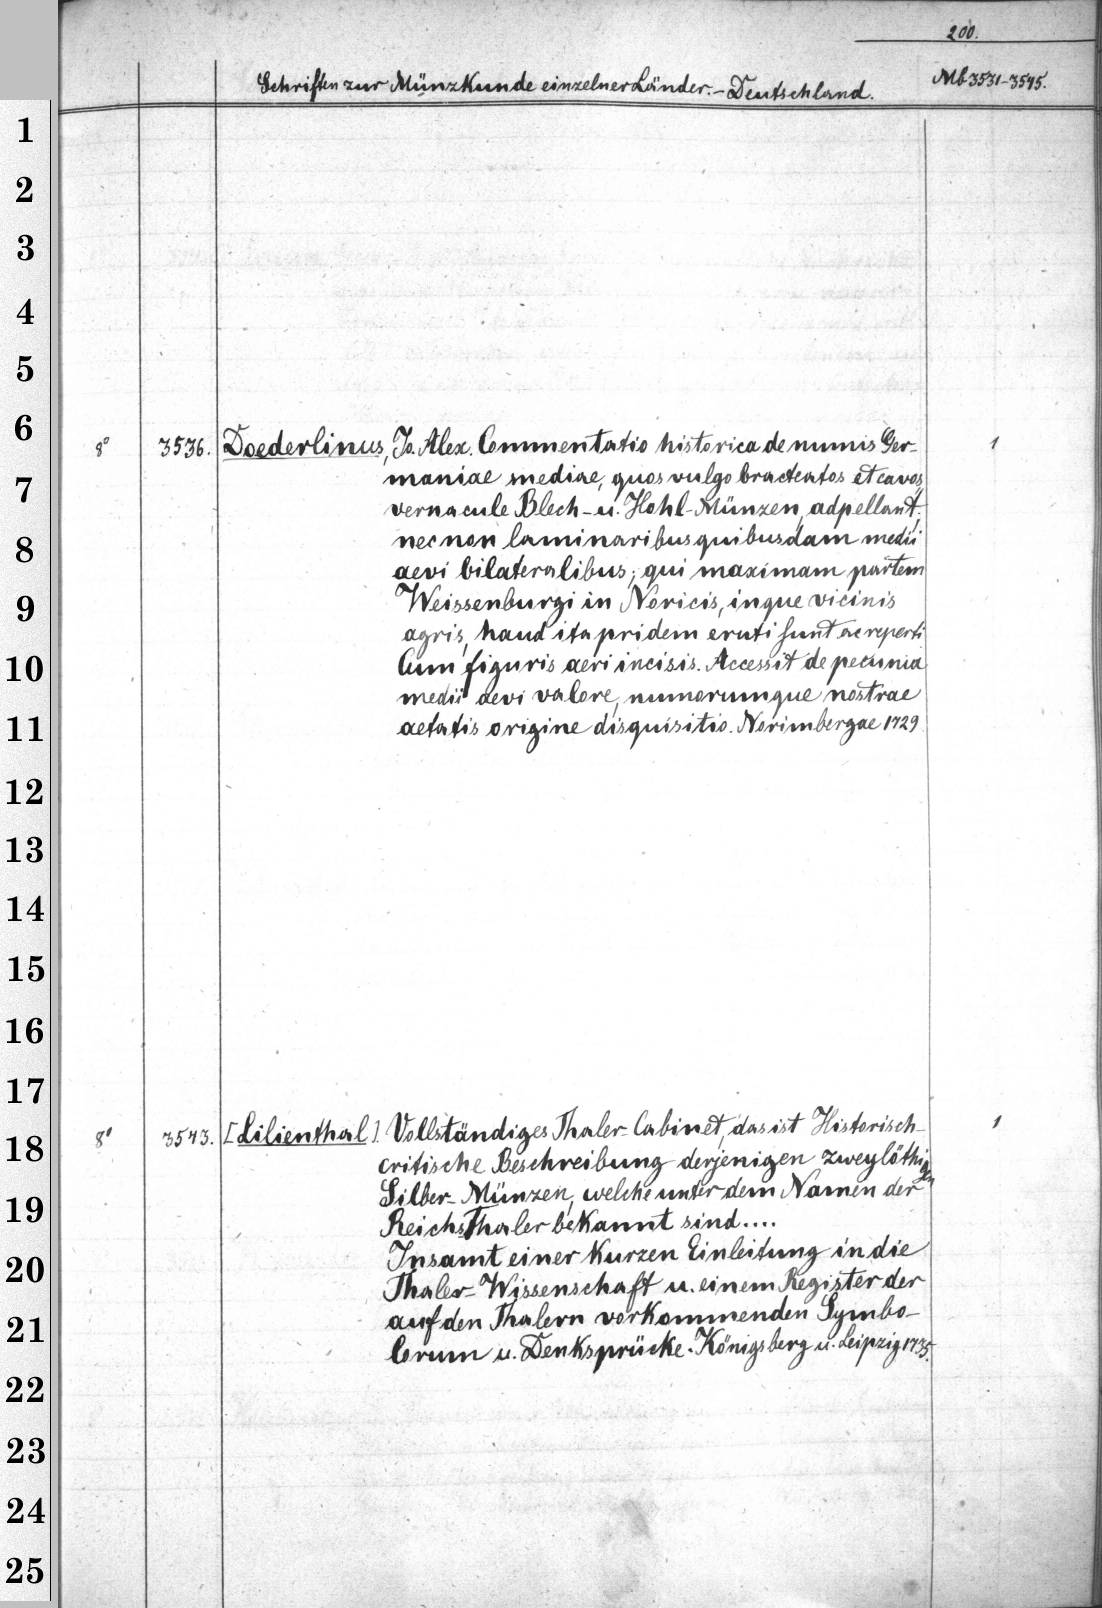 200.
Schriften zur Münzkunde einzelner Länder. – Deutschland.
Mb 3531-3545.
1
2
3
4
5
6
7
8
9
10
11
12
13
14
15
16
17
18
19
20
21
22
23
24
25
8° 3536. Doederlinus, Jo. Alex. Commentatio historica de numis Ger- 1
maniae mediae, quos vulgo bracteatos et cavos,
vernacule Blech- u. Hohl-Münzen, adpellant,
nec non laminaribus quibusdam medii
aevi bilateralibus; qui maximam partem
Weissenburgi in Noricis, inque vicinis
agris, haud ita pridem eruti sunt ac reperti
Cum figuris aeri incisis. Accessit de pecunia
medii aevi valore, numorumque nostrae
aetatis origine disquisitio. Norimbergae 1729
8° 3543. [Lilienthal] Vollständiges Thaler-Cabinet, das ist Historisch- 1
critische Beschreibung derjenigen zweylöthigen
Silber-Münzen, welche unter dem Namen der
ReichsThaler bekannt sind....
Insamt einer kurzen Einleitung in die
Thaler-Wissenschaft u. einem Register der
auf den Thalern vorkommenden Symbo-
lorum u. Denksprücke. Königsberg u. Leipzig 1735.